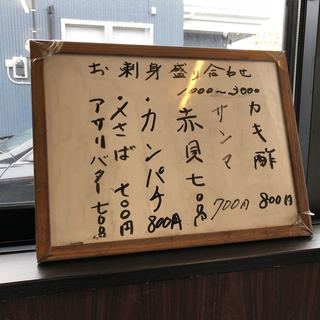 お刺身盛り合わせ
1000〜3000
カキ酢 800円
サンマ 700円
赤貝 七〇〇円
・カンパチ 800円
・〆さば 七〇〇円
アサリバター 七〇〇円